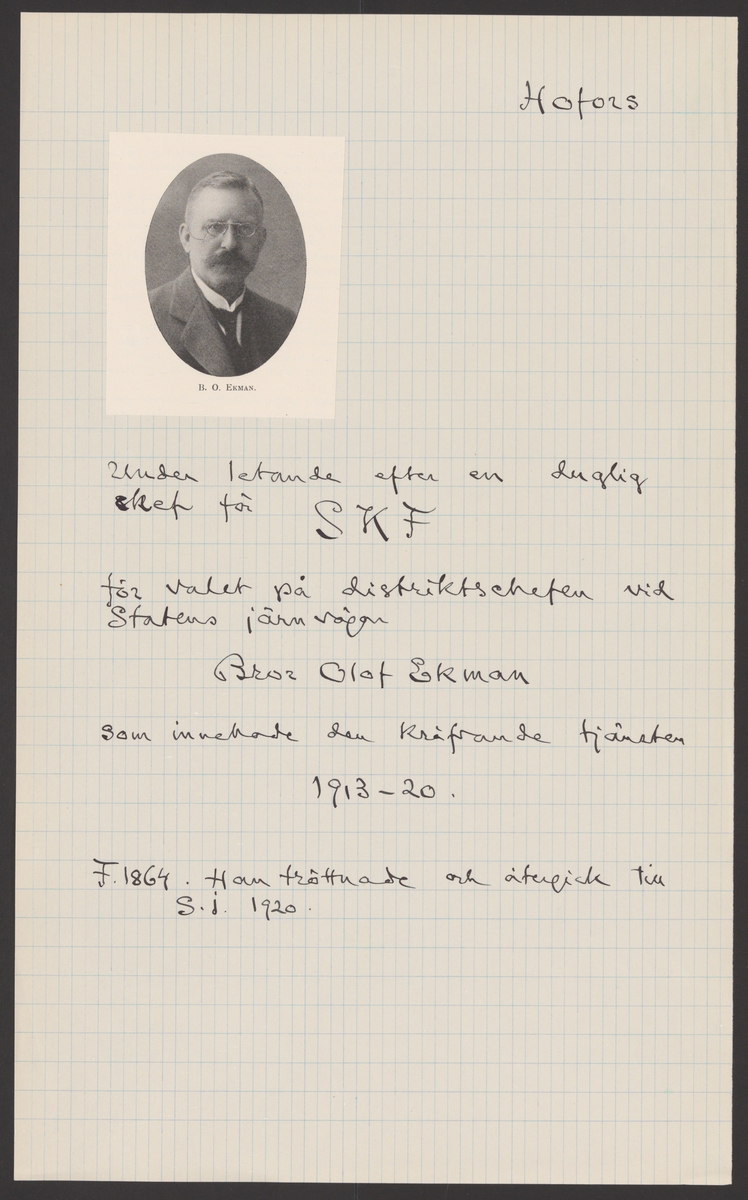 Hofors
B. O. EKMAN.
Under letande efter en duglig
chef för SKF
för valet på distriktschefen vid
Statens järnvägar
Bror Olof Ekman
som innehade den kräfvande tjänsten
1913-20.
F. 1864. Han tröttnade och återgick till
S.J. 1920.